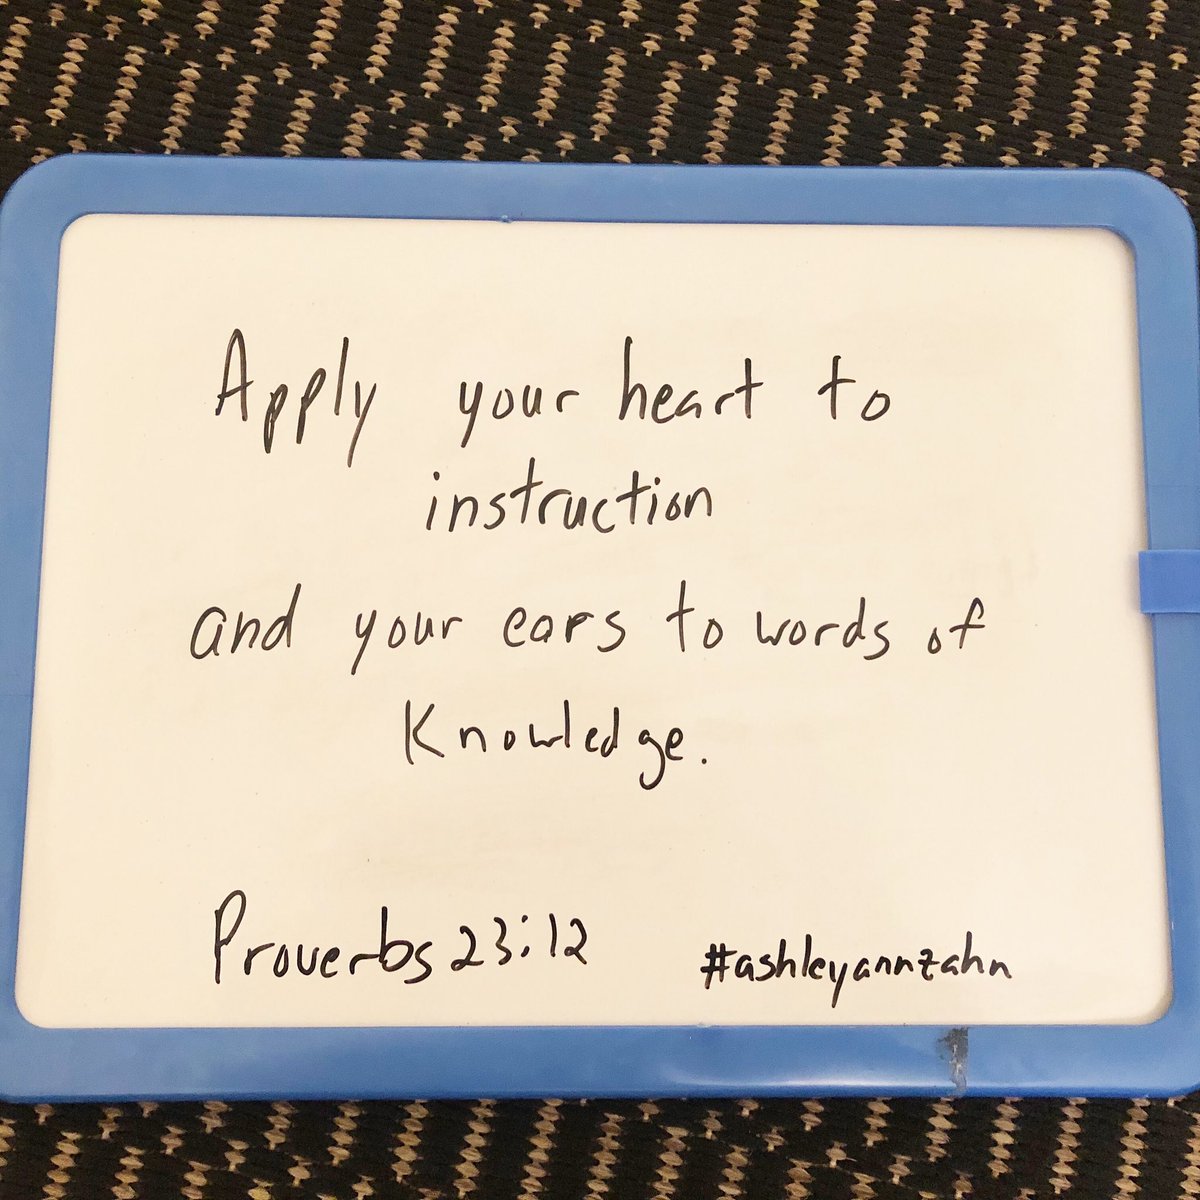 Apply your heart to
instruction
and your ears to words of
Knowledge.
Proverbs 23:12
#ashleyannzahn